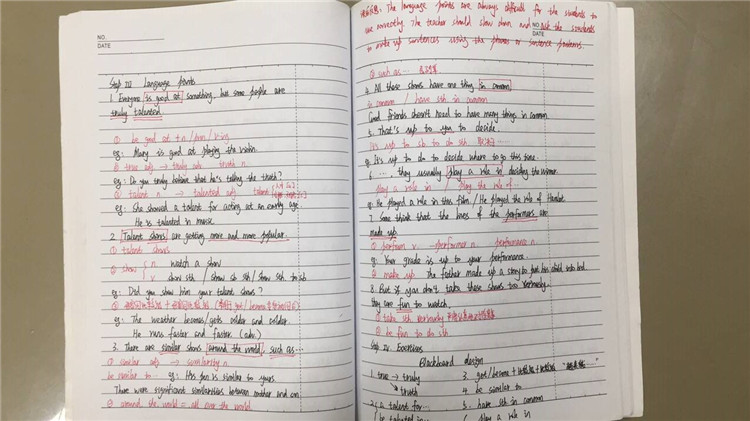 NO.
DATE
Step III Language Points
1. Everyone is good at something, but some people are
truly talented.
① be good at + n / pron / v-ing
eg: Mary is good at playing the violin.
② true adj. → truly adv. truth n.
eg: Do you truly believe that he's telling the truth?
③ talent n. → talented adj. talent
eg: She showed a talent for acting at an early age
He is talented in music.
2. Talent shows are getting more and more popular.
① talent shows
② show { n. watch a show
v. show sth / show sb sth / show sth to sb
eg: Did you show him your talent shows?
③ 形容词比较级 + and + 形容词比较级
eg: The weather becomes/gets colder and colder.
He runs faster and faster. (adv.)
3. There are similar shows around the world, such as...
① similar adj. → similarity n.
be similar to eg: His pen is similar to yours.
There were significant similarities between mother and son
② around the world = all over the world.
The language points are always difficult for the students to
use correctly. The teacher should slow down and ask the students
to make up sentences using the phrases or sentence patterns.
NO.
DATE
③ such as...
4. All these shows have one thing in common.
in common / have sth in common
Good friends don't need to have many things in common.
5. That's up to you to decide.
It's up to sb to do sth
eg. It's up to to decide where to go this time.
6. ..., they usually play a role in deciding the winner.
play a role in / play the role of...
eg. He played a role in this film / He played the role of Hamlet.
7. Some think that the lives of the performers are
made up.
① perform v. → performer n. performance n.
eg: Your grade is up to your performance.
② make up The father made up a story to put his child into bed.
8. But if you don't take these shows too seriously,
they are fun to watch.
① take sth seriously
② be fun to do sth
Step IV Exercises
Blackboard design
1. true → truly
truth
2. a talent for...
be talented in
3. get / become
4. be similar to
5. have sth in common
6. play a role in